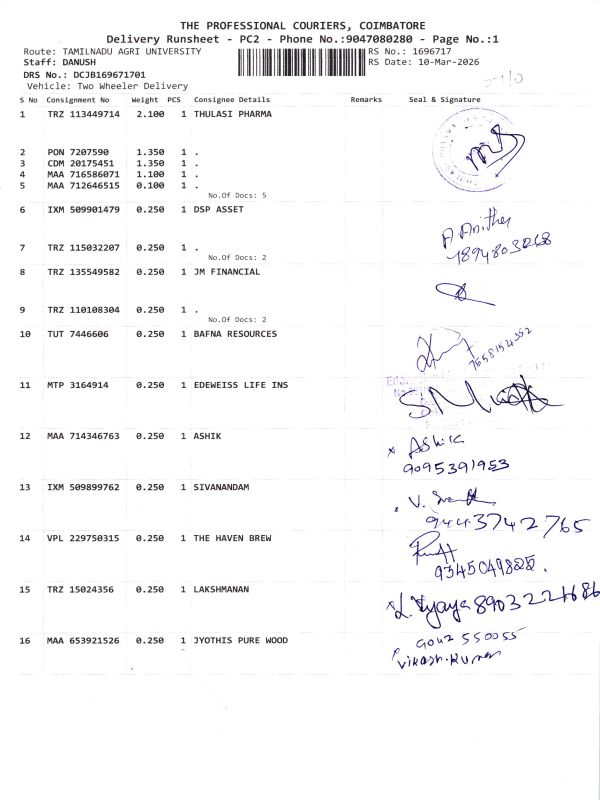 THE PROFESSIONAL COURIERS, COIMBATORE
Delivery Runsheet - PC2 - Phone No.:9047080280 - Page No.:1
Route: TAMILNADU AGRI UNIVERSITY RS No.: 1696717
Staff: DANUSH RS Date: 10-Mar-2026
DRS No.: DCJB169671701
Vehicle: Two Wheeler Delivery
S No Consignment No Weight PCS Consignee Details Remarks Seal & Signature
1 TRZ 113449714 2.100 1 THULASI PHARMA
2 PON 7207590 1.350 1 .
3 CDM 20175451 1.350 1 .
4 MAA 716586071 1.100 1 .
5 MAA 712646515 0.100 1 .
No.Of Docs: 5
6 IXM 509901479 0.250 1 DSP ASSET
A Anitha
7 TRZ 115032207 0.250 1 .
No.Of Docs: 2
8 TRZ 135549582 0.250 1 JM FINANCIAL
9 TRZ 110108304 0.250 1 .
No.Of Docs: 2
10 TUT 7446606 0.250 1 BAFNA RESOURCES
7658154352
11 MTP 3164914 0.250 1 EDEWEISS LIFE INS
12 MAA 714346763 0.250 1 ASHIK
x Ashik
9095391953
13 IXM 509899762 0.250 1 SIVANANDAM
9443742765
14 VPL 229750315 0.250 1 THE HAVEN BREW
15 TRZ 15024356 0.250 1 LAKSHMANAN
L. Vijaya
16 MAA 653921526 0.250 1 JYOTHIS PURE WOOD
9042 550055
Vikash.Kumar